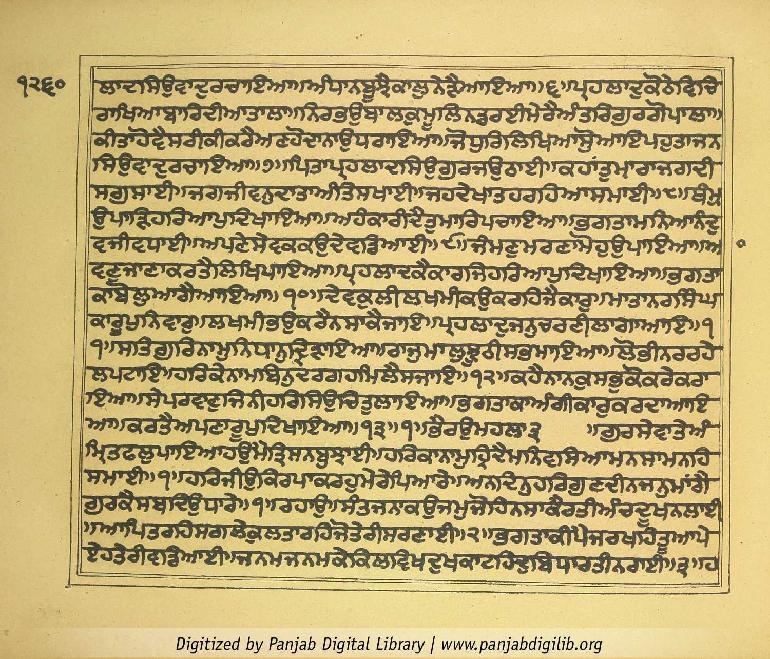 ੧੨੬੦
ਲਾਦਸਿਉਵਾਦੁਰਚਾਇਆ॥ਅੰਧਾਨਬੂਝੈਕਾਲੁਨੇੜੈਆਇਆ॥੬॥ਪ੍ਰਹਲਾਦੁਕੋਠੇਵਿਚਿ
ਰਾਖਿਆਬਾਰਿਦੀਆਤਾਲਾ॥ਨਿਰਭਉਬਾਲਕੁਮੂਲਿਨਡਰਈਮੇਰੈਅੰਤਰਿਗੁਰਗੋਪਾਲਾ॥
ਕੀਤਾਹੋਵੈਸਰੀਕੀਕਰੈਅਣਹੋਦਾਨਾਉਧਰਾਇਆ॥ਜੋਧੁਰਿਲਿਖਿਆਸੋੁਆਇਪਹੁਤਾਜਨ
ਸਿਉਵਾਦੁਰਚਾਇਆ॥੭॥ਪਿਤਾਪ੍ਰਹਲਾਦਸਿਉਗੁਰਜਉਠਾਈ॥ਕਹਾਂਤੁਮਾਰਾਜਗਦੀ
ਸਗੁਸਾਈ॥ਜਗਜੀਵਨੁਦਾਤਾਅੰਤਿਸਖਾਈ॥ਜਹਦੇਖਾਤਹਰਹਿਆਸਮਾਈ॥੮॥ਥੰਮ੍ਹੁ
ਉਪਾੜਿਹਰਿਆਪੁਦਿਖਾਇਆ॥ਅਹੰਕਾਰੀਦੈਤੁਮਾਰਿਪਚਾਇਆ॥ਭਗਤਾਮਨਿਆਨੰਦੁ
ਵਜੀਵਧਾਈ॥ਅਪਣੇਸੇਵਕਕਉਦੇਵਡਿਆਈ॥੯॥ਜੰਮਣੁਮਰਣਾਮੋਹੁਉਪਾਇਆ॥ਆ
ਵਣੁਜਾਣਾਕਰਤੈਲਿਖਿਪਾਇਆ॥ਪ੍ਰਹਲਾਦਕੈਕਾਰਜਿਹਰਿਆਪੁਦਿਖਾਇਆ॥ਭਗਤਾ
ਕਾਬੋਲੁਆਗੈਆਇਆ॥੧੦॥ਦੇਵਕੁਲੀਲਖਮੀਕਉਕਰਹਿਜੈਕਾਰੁ॥ਮਾਤਾਨਰਸਿੰਘ
ਕਾਰੂਪੁਨਿਵਾਰੁ॥ਲਖਮੀਭਉਕਰੈਨਸਾਕੈਜਾਇ॥ਪ੍ਰਹਲਾਦੁਜਨੁਚਰਣੀਲਾਗਾਆਇ॥੧
੧॥ਸਤਿਗੁਰਿਨਾਮੁਨਿਧਾਨੁਦ੍ਰਿੜਾਇਆ॥ਰਾਜੁਮਾਲੁਝੂਠੀਸਭਮਾਇਆ॥ਲੋਭੀਨਰਰਹੇ
ਲਪਟਾਇ॥ਹਰਿਕੇਨਾਮਬਿਨੁਦਰਗਹਮਿਲੈਸਜਾਇ॥੧੨॥ਕਹੈਨਾਨਕੁਸਭੁਕੋਕਰੇਕਰਾ
ਇਆ॥ਸੇਪਰਵਾਣੁਜਿਨੀਹਰਿਸਿਉਚਿਤੁਲਾਇਆ॥ਭਗਤਾਕਾਅੰਗੀਕਾਰੁਕਰਦਾਆਇ
ਆ॥ਕਰਤੈਅਪਣਾਰੂਪੁਦਿਖਾਇਆ॥੧੩॥੧॥ਭੈਰਉਮਹਲਾ੩ ॥ਗੁਰਸੇਵਾਤੇਅੰ
ਮ੍ਰਿਤਫਲੁਪਾਇਆਹਉਮੈਤ੍ਰਿਸਨਬੁਝਾਈ॥ਹਰਿਕਾਨਾਮੁਹ੍ਰਿਦੈਮਨਿਵਸਿਆਮਨਸਾਮਨਹਿ
ਸਮਾਈ॥੧॥ਹਰਿਜੀਉਕ੍ਰਿਪਾਕਰਹੁਮੇਰੇਪਿਆਰੇ॥ਅਨਦਿਨੁਹਰਿਗੁਣਦੀਨਜਨੁਮਾਂਗੈ
ਗੁਰਕੈਸਬਦਿਉਧਾਰੇ॥੧॥ਰਹਾਉ॥ਸੰਤਜਨਾਕਉਜਮੁਜੋਹਿਨਸਾਕੈਰਤੀਅੰਚਦੂਖਨਲਾਈ
॥ਆਪਿਤਰਹਿਸਗਲੇਕੁਲਤਾਰਹਿਜੋਤੇਰੀਸਰਣਾਈ॥੨॥ਭਗਤਾਕੀਪੈਜਰਖਹਿਤੂਆਪੇ
ਏਹਤੇਰੀਵਡਿਆਈ॥ਜਨਮਜਨਮਕੇਕਿਲਵਿਖਦੁਖਕਾਟਹਿਦੁਬਿਧਾਰਤੀਨਰਾਈ॥੩॥ਹ
Digitized by Panjab Digital Library | www.panjabdigilib.org